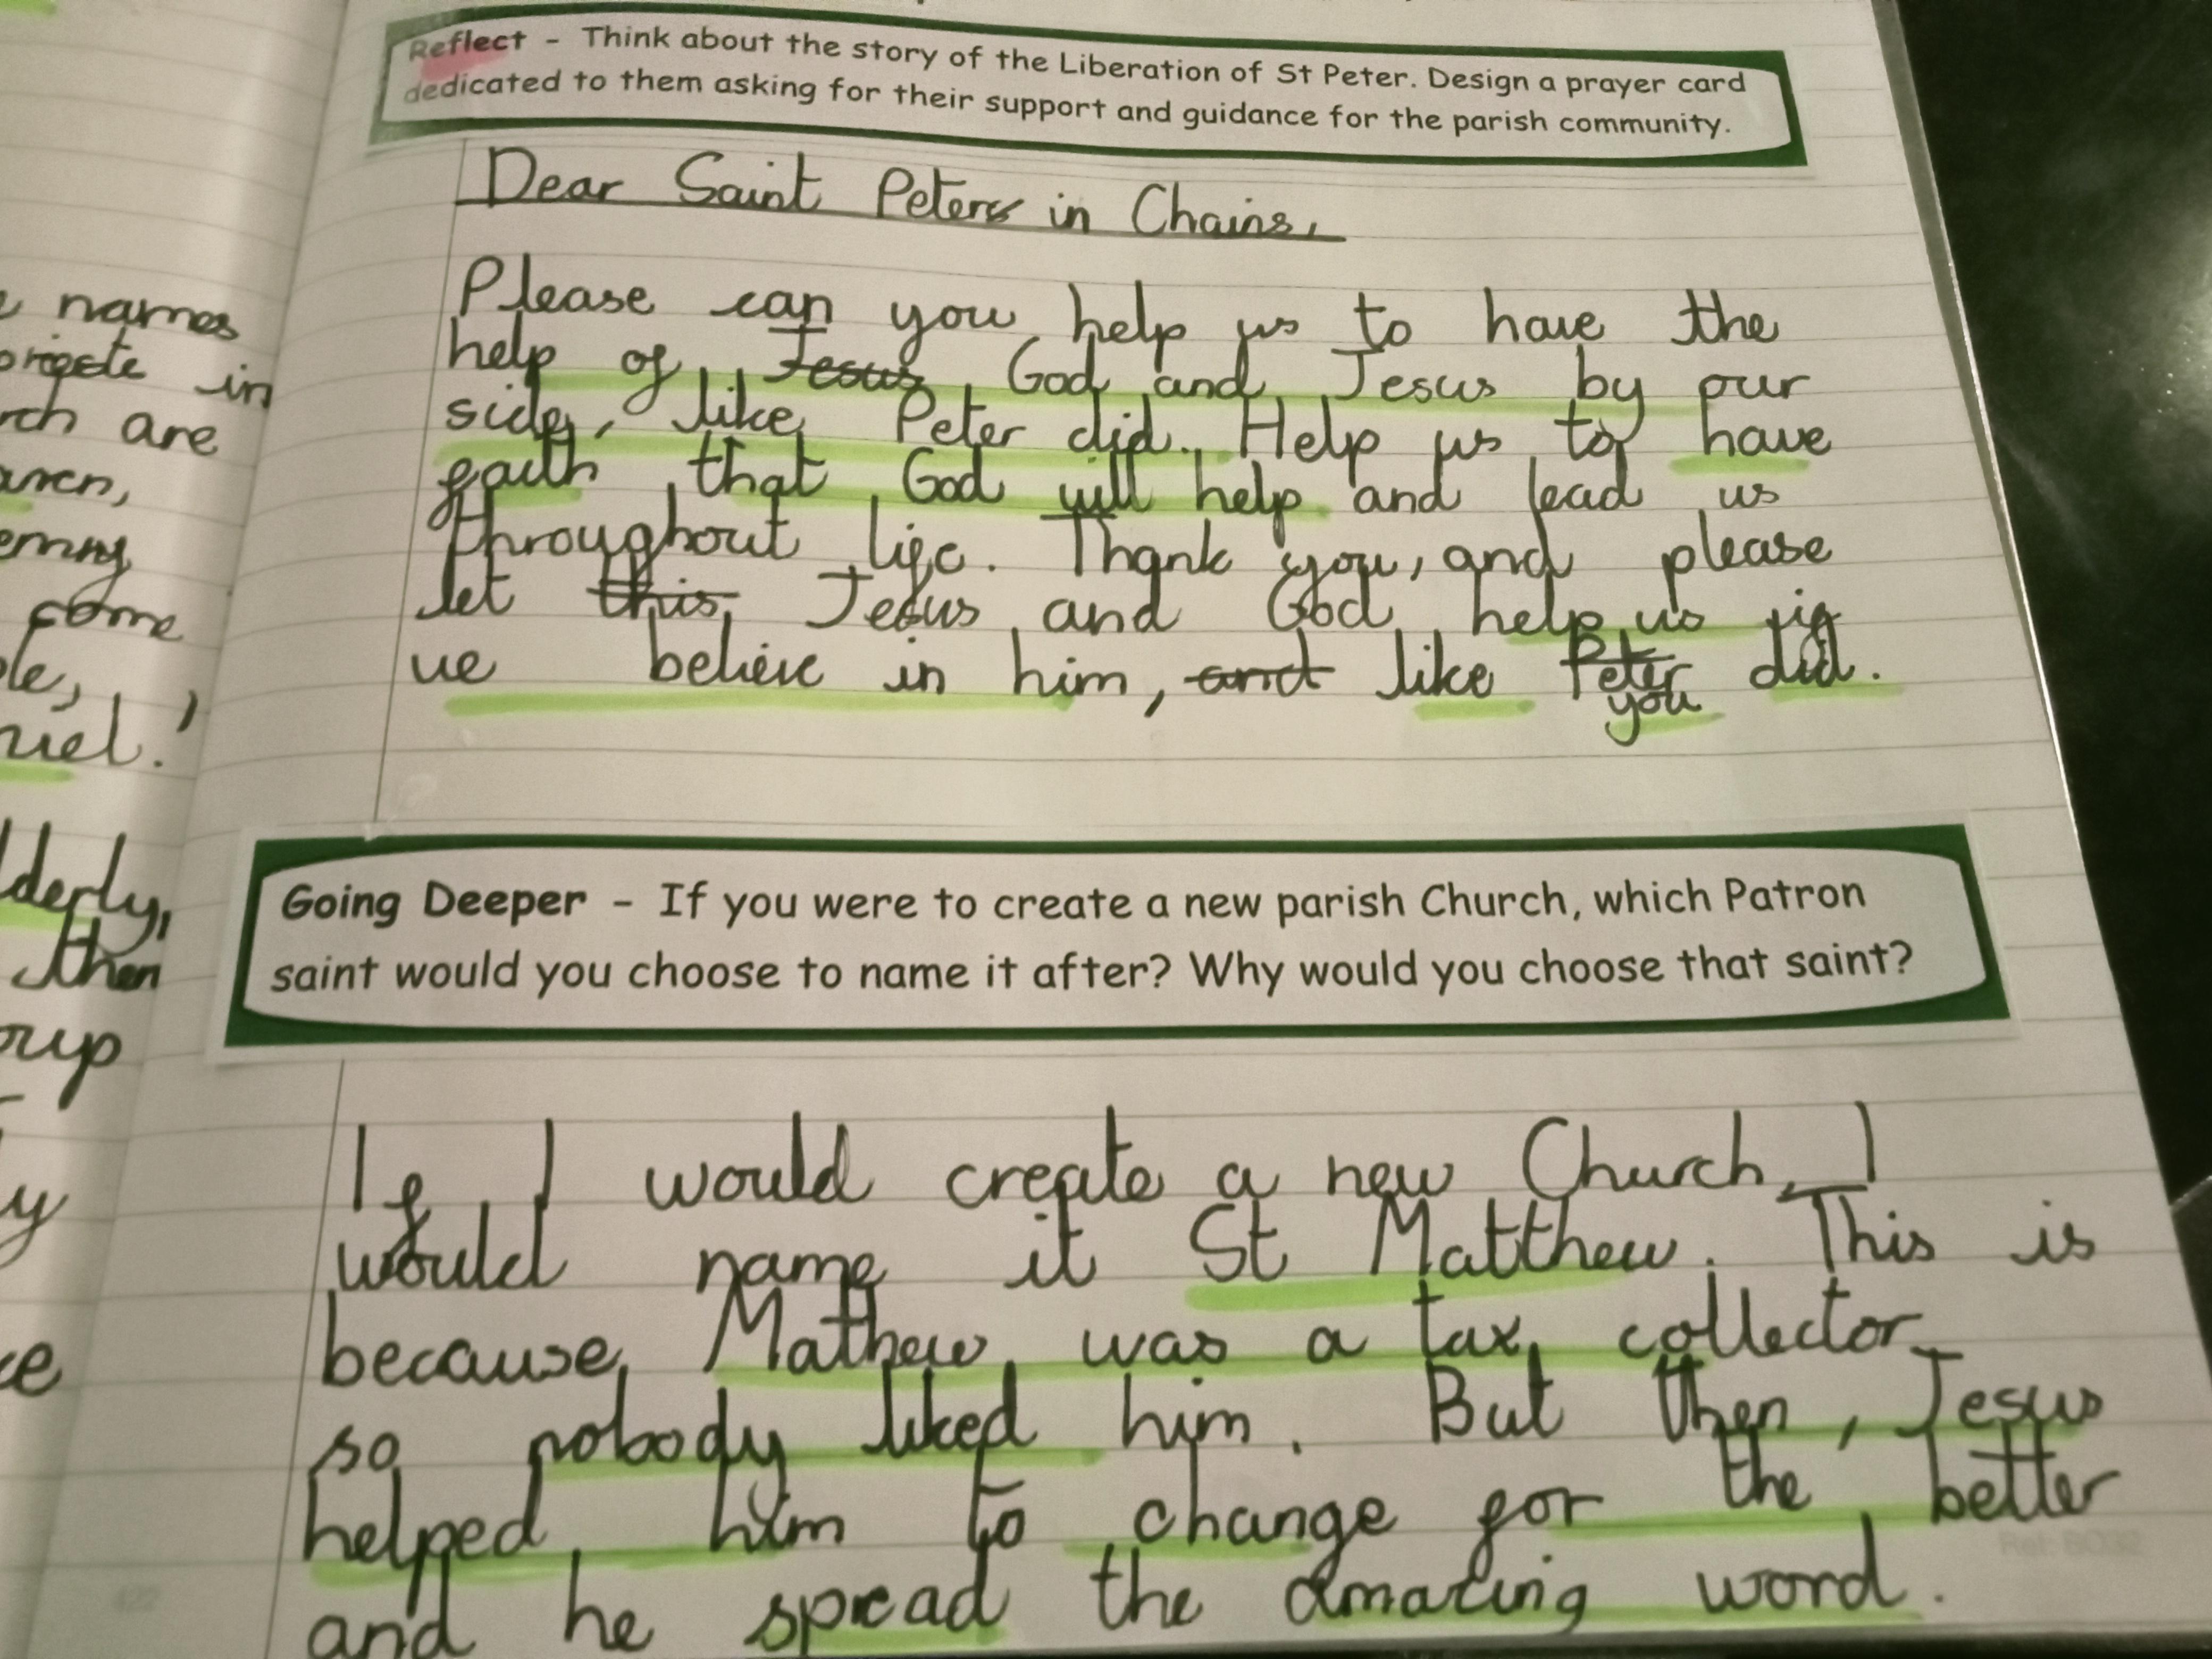 names
in
rch are
come
uel.'
derly,
then
oup
Reflect - Think about the story of the Liberation of St Peter. Design a prayer card
dedicated to them asking for their support and guidance for the parish community.
Dear Saint Peter in Chains,
Please can you help us to have the
help of Jesus God and Jesus by our
side, like Peter did. Help us to have
faith that God will help and lead us
throughout life. Thank you, and please
let this Jesus and God help us if
we believe in him, and like Peter did.
you
Going Deeper - If you were to create a new parish Church, which Patron
saint would you choose to name it after? Why would you choose that saint?
If I would create a new Church, I
would name it St Matthew. This is
because Mathew was a tax collector
so nobody liked him. But then, Jesus
helped him to change for the better
and he spread the amazing word.